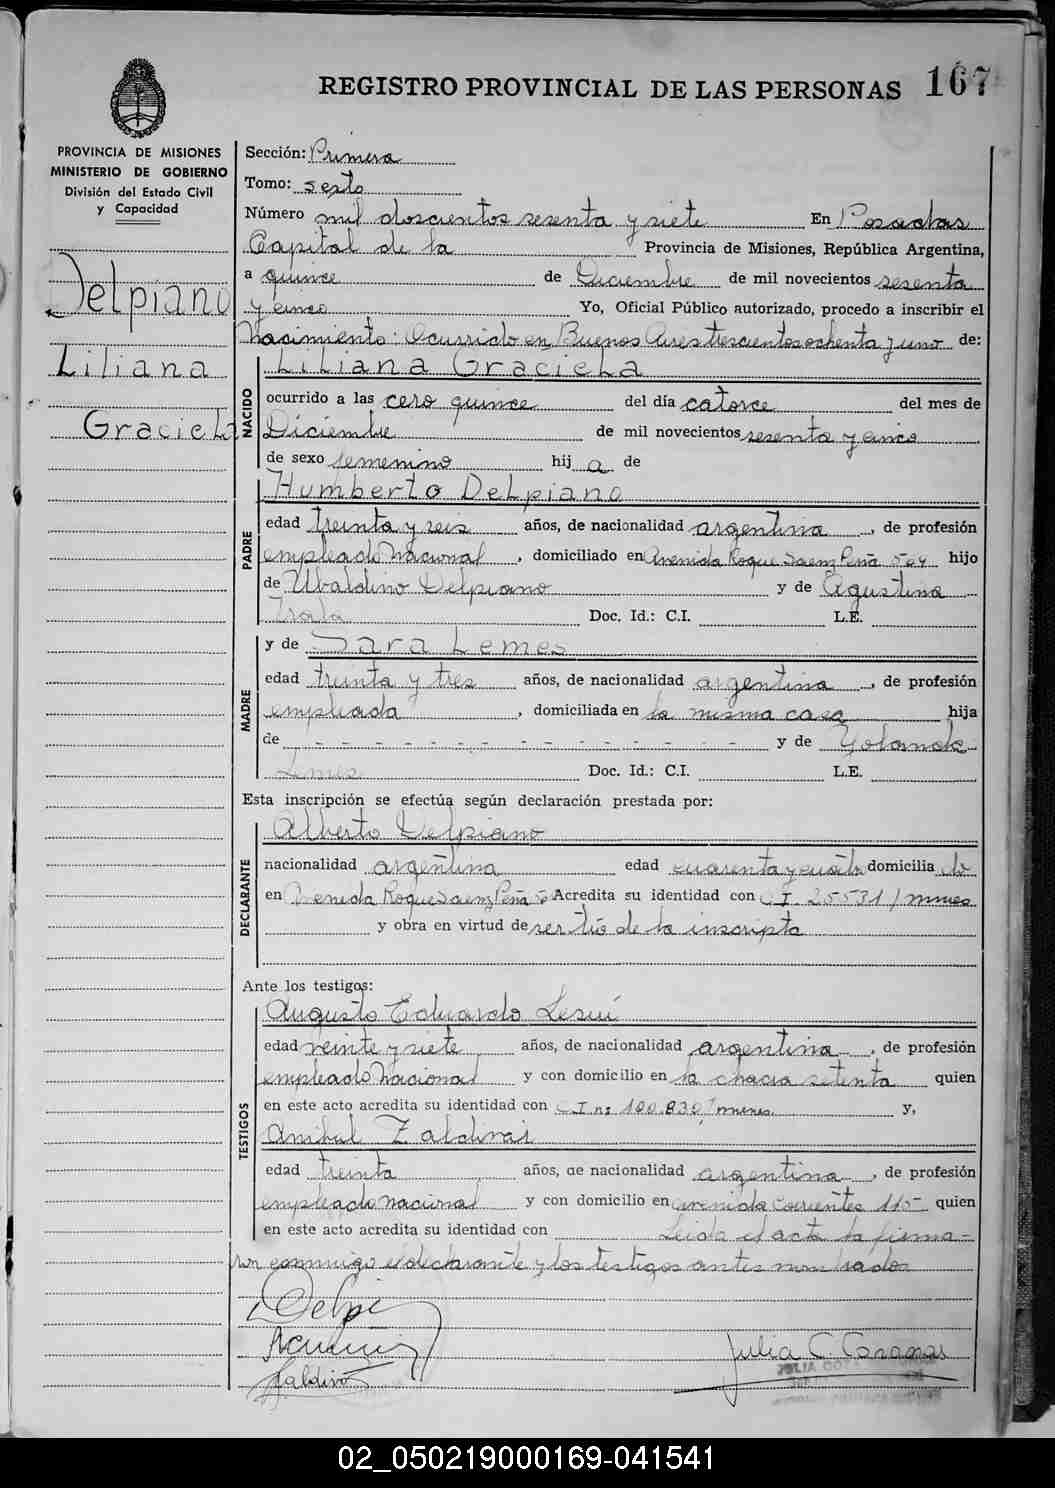 REGISTRO PROVINCIAL DE LAS PERSONAS 167
PROVINCIA DE MISIONES
MINISTERIO DE GOBIERNO
División del Estado Civil
y Capacidad
Delpiano
Liliana
Graciela
Sección: Primera
Tomo: sexto
Número mil doscientos sesenta y siete En Posadas
Capital de la Provincia de Misiones, República Argentina,
a quince de Diciembre de mil novecientos sesenta
y cinco Yo, Oficial Público autorizado, procedo a inscribir el
Nacimiento: Ocurrido en Buenos Aires trescientos ochenta y uno de:
NACIDO
Liliana Graciela
ocurrido a las cero quince del día catorce del mes de
Diciembre de mil novecientos sesenta y cinco
de sexo femenino hij a de
PADRE
Humberto Delpiano
edad treinta y seis años, de nacionalidad argentina, de profesión
empleado Nacional, domiciliado en Avenida Roque Saenz Peña hijo
de Ubaldino Delpiano y de Agustina
Doc. Id.: C.I. L.E.
MADRE
y de Sara Lemes
edad treinta y tres años, de nacionalidad argentina, de profesión
empleada, domiciliada en la misma casa hija
de - - - - - - - - - - - - - - - y de Yolanda
Lemes Doc. Id.: C.I. L.E.
Esta inscripción se efectúa según declaración prestada por:
DECLARANTE
Alberto Delpiano
nacionalidad argentina edad cuarenta y cuatro domicilia do
en Avenida Roque Saenz Peña Acredita su identidad con C.I. 25531/ mnes
y obra en virtud de ser tío de la inscripta
Ante los testigos:
TESTIGOS
Augusto Eduardo
edad veinte y siete años, de nacionalidad argentina, de profesión
empleado Nacional y con domicilio en la chacra setenta quien
en este acto acredita su identidad con C.I. nº 100.830/ mnes. y,
Anibal Zaldivar
edad treinta años, de nacionalidad argentina, de profesión
empleado nacional y con domicilio en avenida Corrientes 115 quien
en este acto acredita su identidad con Leida el acta la firma-
ron conmigo el declarante y los testigos antes nombrados
Julia C.
02_050219000169-041541